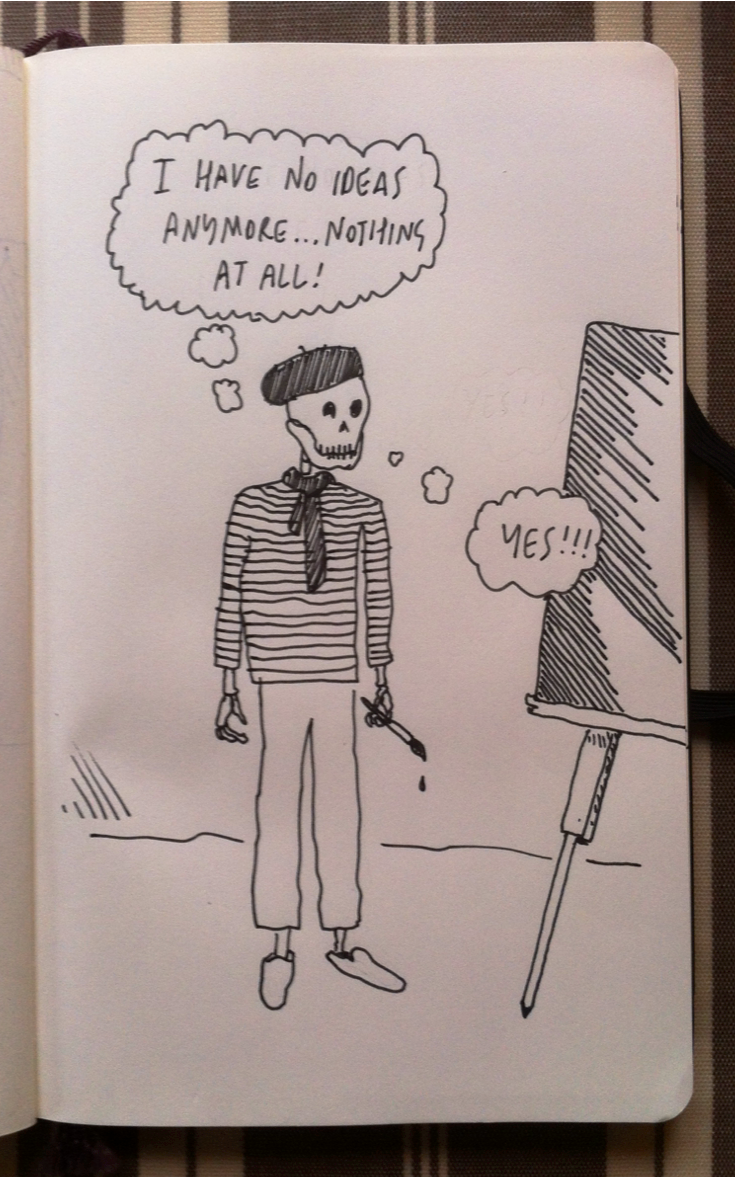 I HAVE NO IDEAS
ANYMORE...NOTHING
AT ALL!
YES!!!